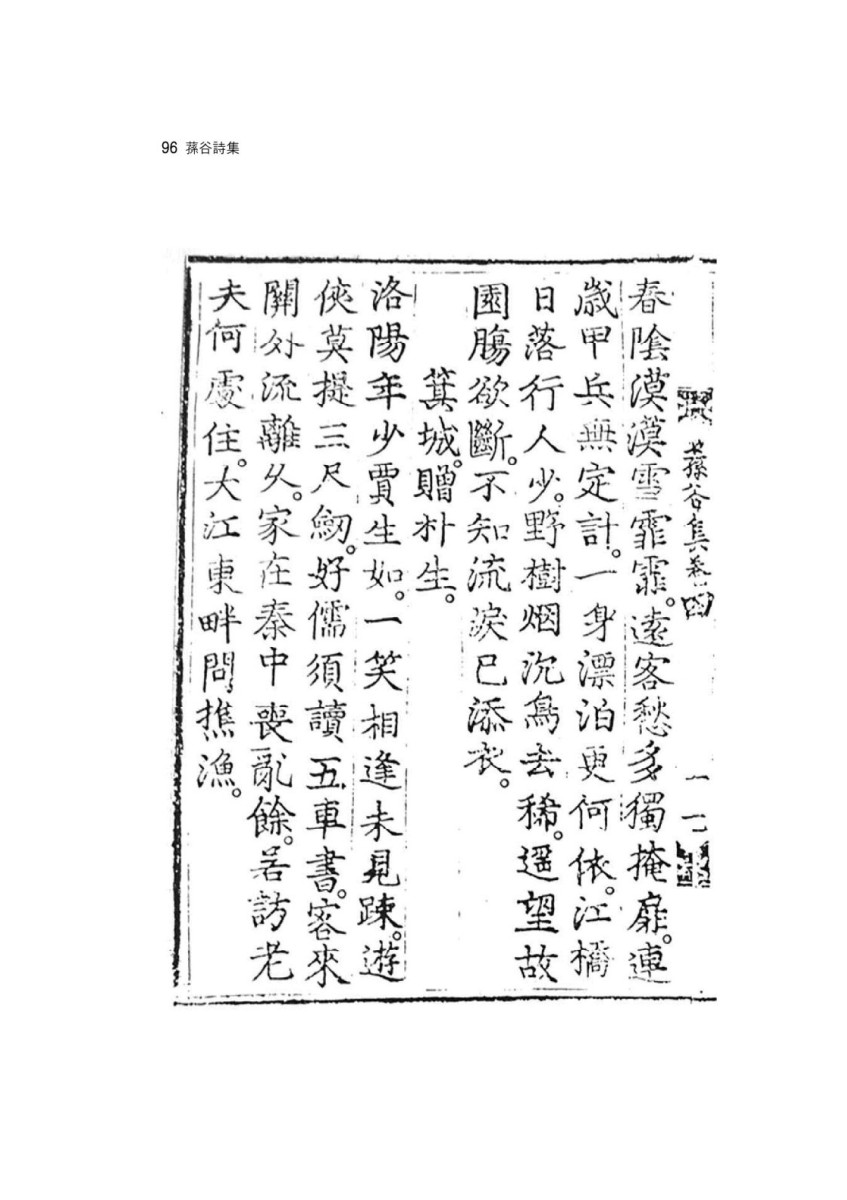 96 蓀谷詩集
蓀谷集卷四
春陰漠漠雪霏霏。遠客愁多獨掩扉。連
歲甲兵無定計。一身漂泊更何依。江橋
日落行人少。野樹烟沉鳥去稀。遥望故
園腸欲斷。不知流淚已添衣。
箕城。贈朴生。
洛陽年少賈生如。一笑相逢未見踈。遊
俠莫提三尺劒。好儒須讀五車書。客來
關外流離久。家在秦中喪亂餘。若訪老
夫何處住。大江東畔問樵漁。